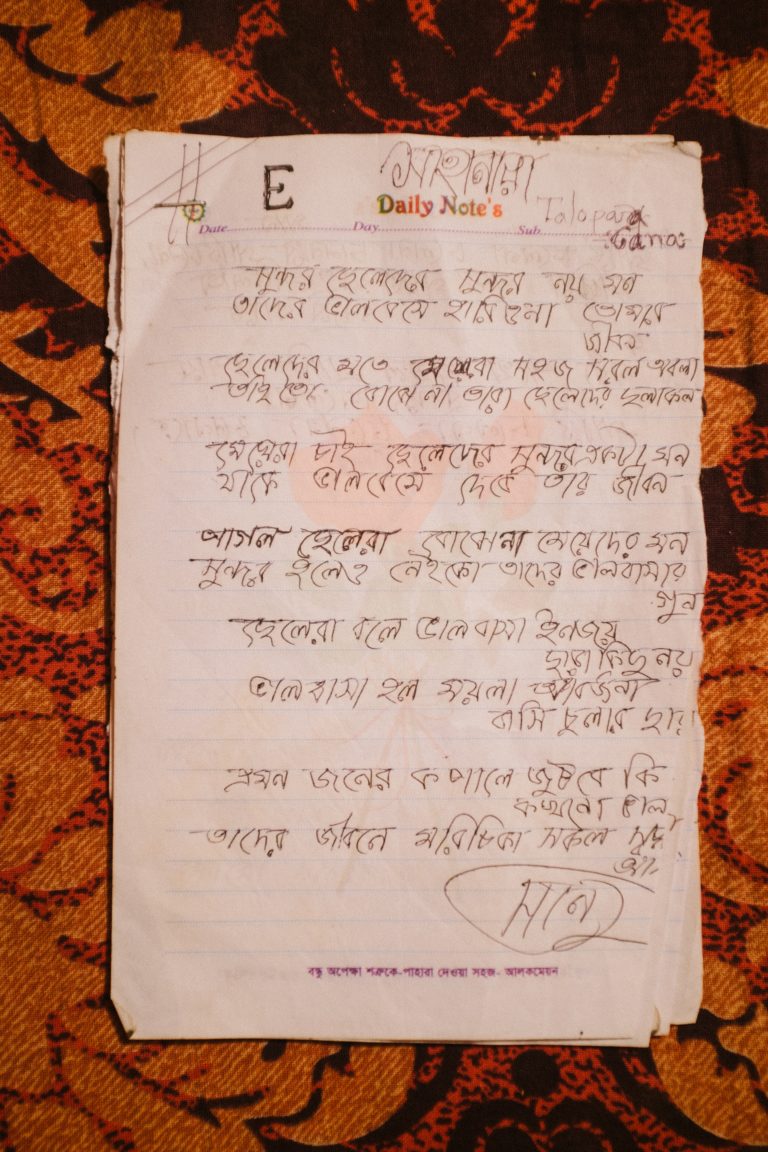 E
Daily Note's
Date Day Sub
সুন্দর ছেলেদের সুন্দর নয় মন
তাদের ভালবেসে হারিওনা তোমার
জীবন
ছেলেদের মতে মেয়েরা সহজ সরল অবলা
তাই তো বোঝেনা তারা ছেলেদের ছলাকলা
মেয়েরা চাই ছেলেদের সুন্দর একটা মন
যাকে ভালবেসে দেবে তার জীবন
পাগল ছেলেরা বোঝেনা মেয়েদের মন
সুন্দর হলেও নেইকো তাদের ভালবাসার
গুন
ছেলেরা বলে ভালবাসা ইনজয়
ছাড়া কিছু নয়
ভালবাসা হল ময়লা আবর্জনা
বাসি চুলার ছায়
এমন জনের কপালে জুটবে কি
কখনো ভাল
তাদের জীবনে মরিচিকা সকল
বন্ধু অপেক্ষা শত্রুকে-পাহারা দেওয়া সহজ- আলকমেয়ন